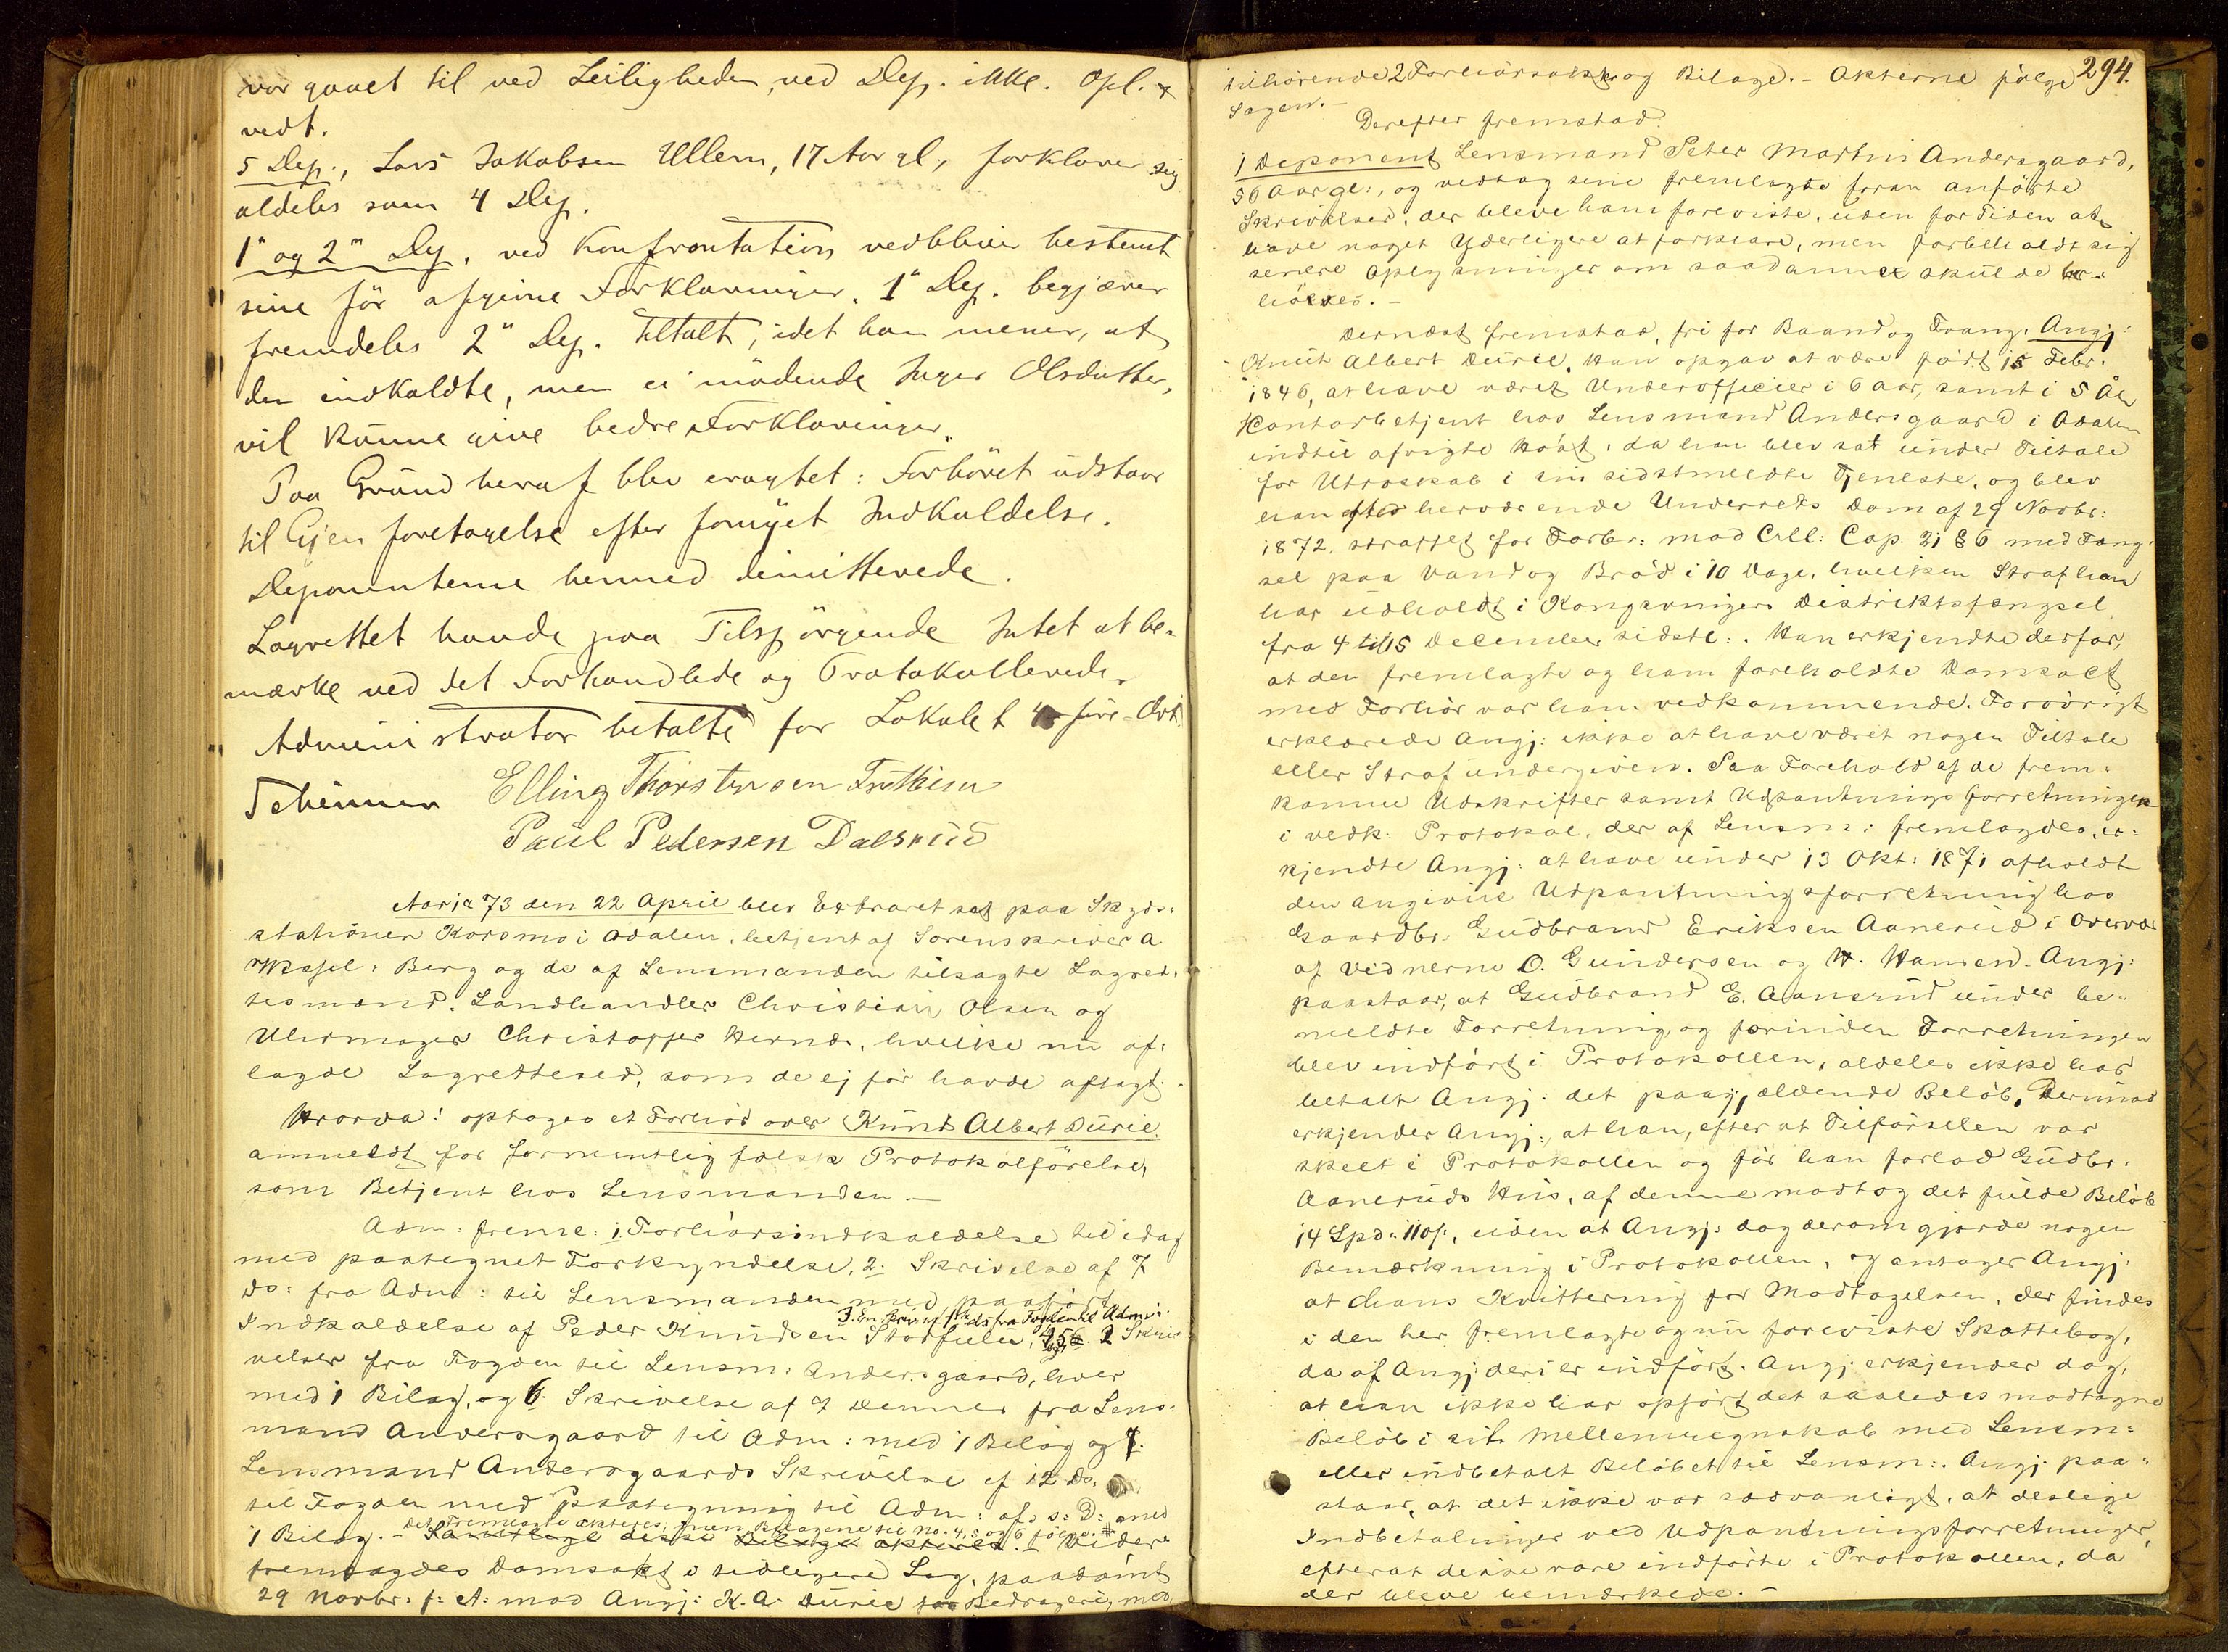 var gaaet til ved Leiligheden, ved Dep. ikke. Opl. &
vedt.
5 Dep., Lars Jakobsen Ullern, 17 Aar gl., forklarer sig
aldeles som 4 Dep.
1" og 2" Dep. ved Konfrontation vedbliver bestemt
sine før afgivne Forklaringer. 1" Dep. begjærer
fremdeles 2" Dep. tiltalt, idet han mener, at
den indkaldte, men ei mødende Inger Olsdatter,
vil kunne give bedre Forklaringer.
Paa Grund heraf blev eragtet: Forhøret udstaar
til Gjenforetagelse efter fornyet Indkaldelse.
Deponenterne hermed dimitterede.
Lagrettet havde paa Tilspørgende Intet at be-
mærke ved det Forhandlede og Protokollerede.
Administrator betalte for Lokalet
Elling Thorstensen
Paul Pedersen Dalsrud
Aar 1873 den 22 April blev Extraret sat paa Skyds-
stationen Korsmo i Odalen, betjent af Sorenskriver A.
Berg og de af Lensmanden tilsagte Lagret-
tesmænd: Landhandler Christian Olsen og
Uhrmager Christoffer Hernæs, hvilke nu af-
lagde Lagretteed, som de ej før havde aflagt.
Hvorda: optoges et Forhør over Knud Albert Durie,
anmeldt for formentlig falsk Protokolførelse,
som Betjent hos Lensmanden. —
Adm: freml: 1. Forhørsindkaldelse til idag
med paategnet Forkyndelse, 2. Skrivelse af 7
ds: fra Adm: til Lensmanden med paaført
3. En Skriv. af ds fra Fogden til Admi-
Indkaldelse af Peder Knudsen Storfilen, 4, 5 2 Skri-
velser fra Fogden til Lensm: Andersgaard, hver
med 1 Bilag, og 6. Skrivelse af 7 dennes fra Lens-
mand Andersgaard til Adm: med 1 Bilag og 7.
Lensmand Andersgaards Skrivelse af 12 ds.
til Fogden med Paategning til Adm: af s: D: med
det Fremlagte akteres, men Bilagene til No. 4, 5 og 6 følge.
1 Bilag. — Samtlige disse Bilage akteres. — Videre
fremlagdes Domsakt i tidligere Sag, paadømt
29 Novbr: f: A: mod Angj: K. A. Durie for Bedrageri, med
294.
tilhørende 2 Forhørsakter og Bilage. — Akterne følge
Sagen. —
Derefter fremstod.
1 Deponent Lensmand Peter Martin Andersgaard,
56 Aar gl:, og vedtog sine fremlagte foran anførte
Skrivelser, der bleve ham foreviste, uden for Tiden at
have noget Yderligere at forklare, men forbeholdt sig
senere Oplysninger om saadanne skulde be-
høves. —
Dernæst fremstod, fri for Baand og Tvang, Angj:
Knut Albert Durie. Han opgav at være født 15 Febr:
1846, at have været Underofficier i 6 Aar, samt i 5 År
Kontorbetjent hos Lensmand Andersgaard i Odalen
indtil afvigte Høst, da han blev sat under Tiltale
for Utroskab i sin sidstmeldte Tjeneste, og blev
han ved herværende Underrets Dom af 29 Novbr:
1872, straffet for Forbr: mod Crll: Cap. 21 § 6 med Fæng-
sel paa Vand og Brød i 10 Dage, hvilken Straf han
har udholdt i Kongsvingers Distriktsfængsel
fra 4 til 15 December sidstl:. Han erkjendte derfor,
at den fremlagte og ham foreholdte Domsact
med Forhør var ham vedkommende. Forøvrigt
erklærede Angj: ikke at have været nogen Tiltale
eller Straf undergiven. Paa Forehold af de frem-
komne Udskrifter samt Udpantningsforretningen
i vedk: Protokol, der af Lensm: fremlagdes, er-
kjendte Angj: at have under 13 Okt: 1871 afholdt
den angivne Udpantningsforretning hos
Gaardbr: Gudbrand Eriksen Aanerud i Overvær
af Vidnerne O. Gundersen og H. Hansen. Angj:
paastaar, at Gudbrand E. Aanerud under be-
meldte Forretning, og forinden Forretningen
blev indført i Protokollen, aldeles ikke har
betalt Angj: det paagjældende Beløb. Derimod
erkjender Angj:, at han, efter at Tilførselen var
skeet i Protokollen og før han forlod Gudbr:
Aaneruds Hus, af denne modtog det fulde Beløb
14 Spd: 110 s:, uden at Angj: dog derom gjorde nogen
Bemærkning i Protokollen, og antager Angj:
at hans Kvittering for Modtagelsen, der findes
i den her fremlagte og nu foreviste Skattebog,
da af Angj: deri er indført. Angj: erkjender dog,
at han ikke har opført det saaledes modtagne
Beløb i sit Mellemregnskab med Lensm:
eller indbetalt Beløbet til Lensm:. Angj: paa-
staar, at det ikke var sædvanligt, at deslige
Indbetalinger ved Udpantningsforretninger,
efterat disse vare indførte i Protokollen, da
der bleve bemærkede. —